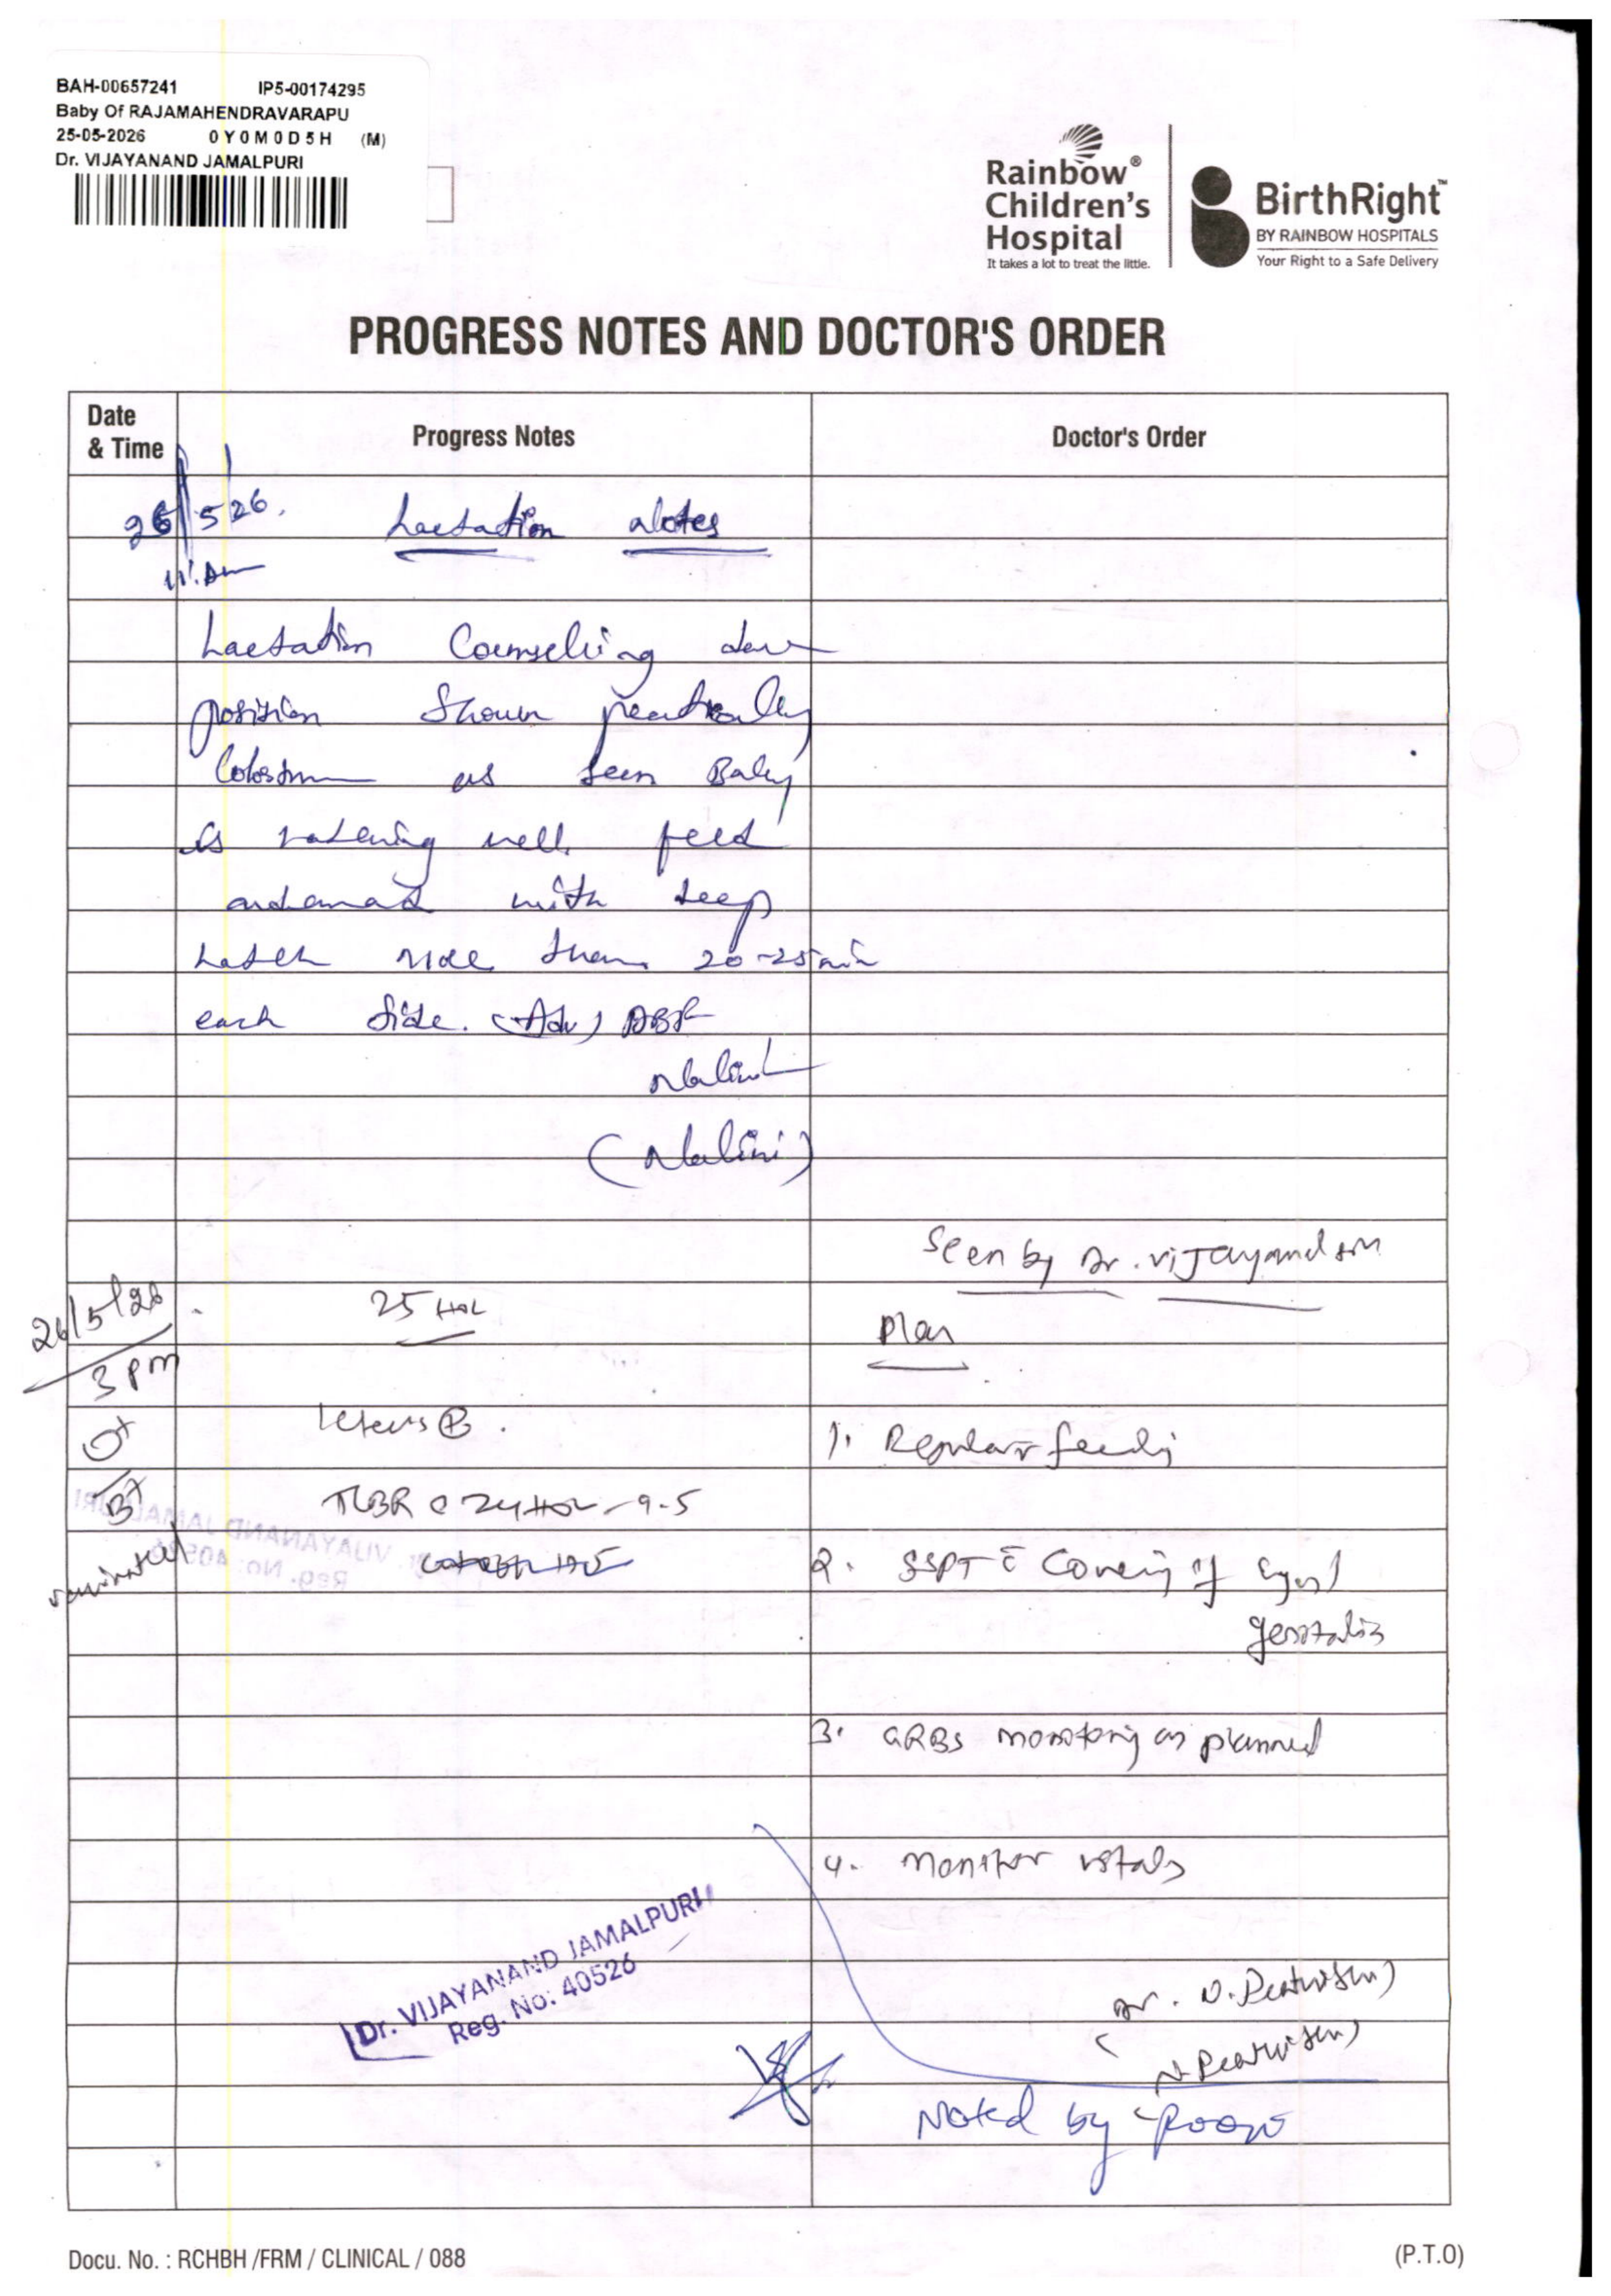 BAH-00657241 IP5-00174295
Baby Of RAJAMAHENDRAVARAPU
25-05-2026 0Y0M0D5H (M)
Dr. VIJAYANAND JAMALPURI
Rainbow®
Children's
Hospital
It takes a lot to treat the little.
BirthRight™
BY RAINBOW HOSPITALS
Your Right to a Safe Delivery
PROGRESS NOTES AND DOCTOR'S ORDER
Date
& Time
Progress Notes
Doctor's Order
26/5/26. Lactation Notes
11:Am
Lactation Counseling done
position Shown
Colostrum as seen Baby
is well feed
with deep
Latch than 20-25min
each side. (Adv) DBF
Nalini
(Nalini)
Seen by Dr. Vijayanand Sir
26/5/26
3 pm
25 HOL
Plan
O+
B+
Icterus (+).
1. Regular feeding
TCBR @ 24HOL - 9.5
2. SSPT c̄ Covering of eyes/
genitalia
3. GRBS monitoring as planned
4. Monitor vitals
Dr. VIJAYANAND JAMALPURI
Reg. No: 40526
Noted by
Docu. No. : RCHBH /FRM / CLINICAL / 088
(P.T.O)